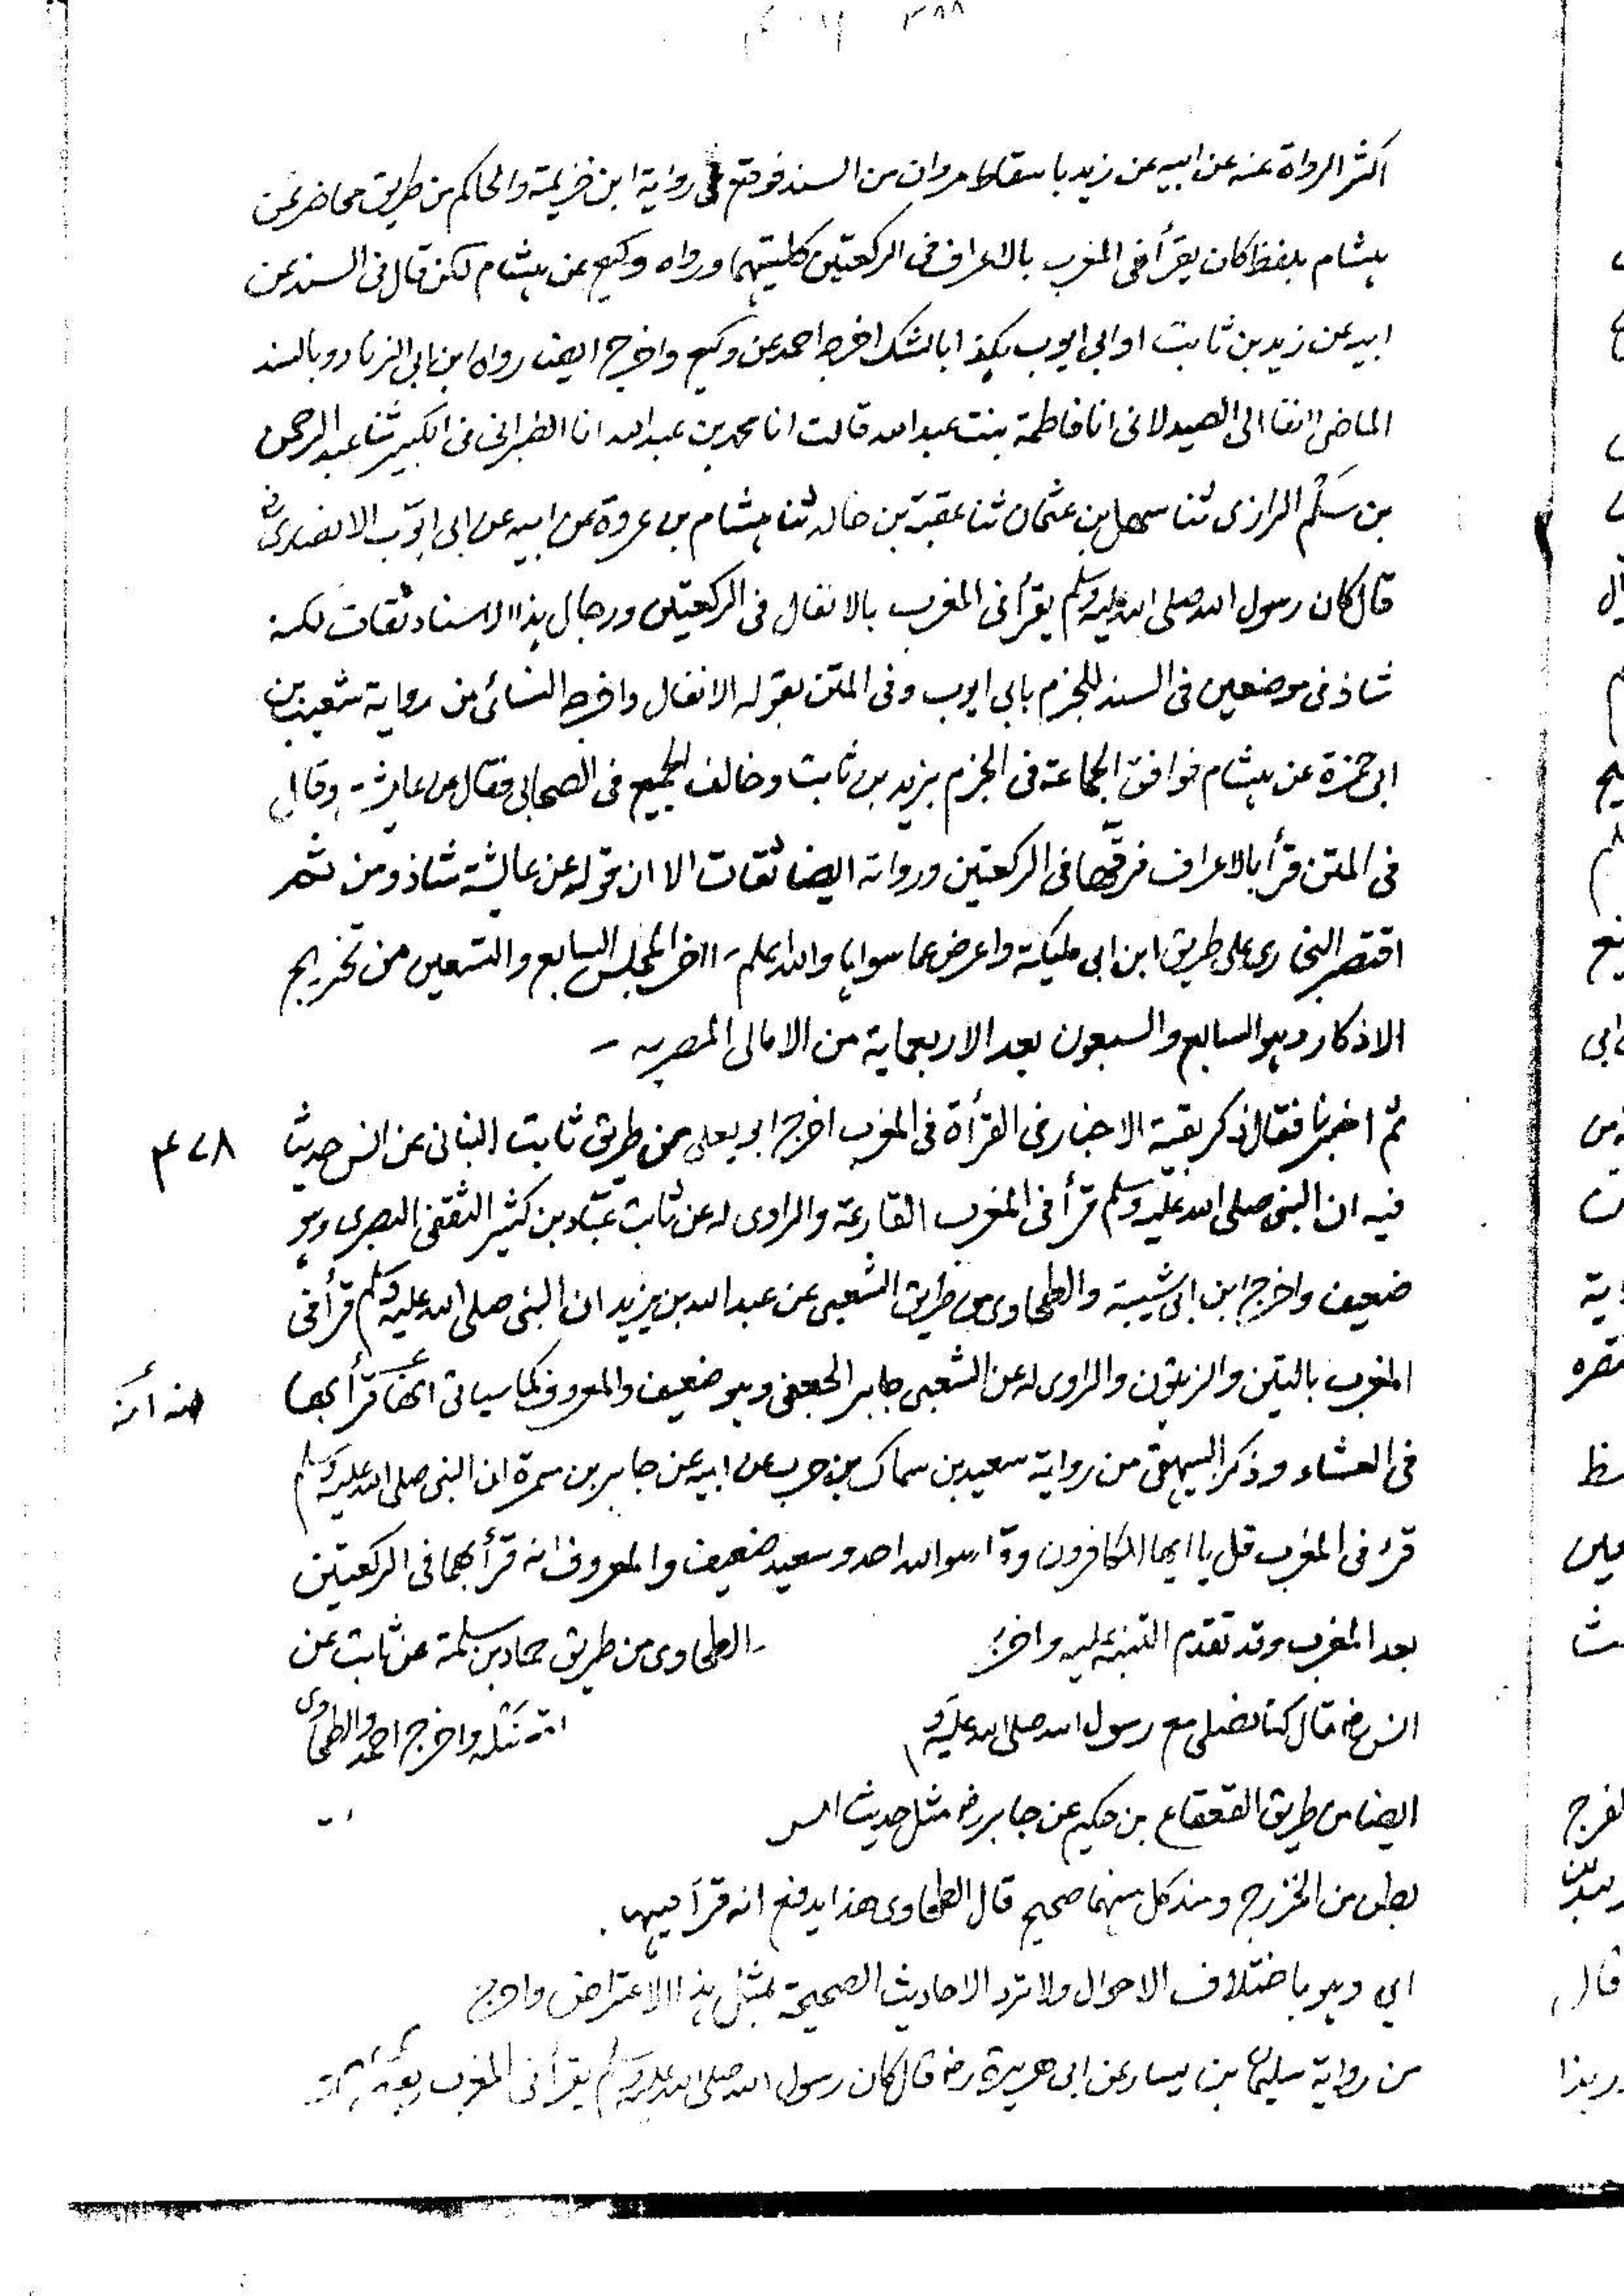 ٣٨٨
اكثر الرواة عنه عن ابيه عن زيد باسقاط مروان من السند فوقع فى رواية ابن خزيمة والحاكم من طريق محاضر عن
هشام بلفظ كان يقرأ فى المغرب بالاعراف فى الركعتين كلتيهما ورواه وكيع عن هشام لكن قال فى السند عن
ابيه عن زيد بن ثابت او ابى ايوب هكذا بالشك اخرجه احمد عن وكيع واخرج ايضا رواه ابن ابى الزناد وبالسند
الماضى انفا الى الصيدلانى انا فاطمة بنت عبد الله قالت انا محمد بن عبد الله انا الطبرانى فى الكبير ثنا عبد الرحمن
بن سَلْم الرازى ثنا سهل بن عثمان ثنا عقبة بن خالد ثنا هشام بن عروة عن ابيه عن ابى ايوب الانصارى رض
قال كان رسول الله صلى الله عليه وسلم يقرأ فى المغرب بالانفال فى الركعتين ورجال هذا الاسناد ثقات لكنه
شاذ فى موضعين فى السند للجزم بابى ايوب وفى المتن بقوله الانفال واخرجه النسائى من رواية شعيب بن
ابى حمزة عن هشام فوافق الجماعة فى الجزم بزيد بن ثابت وخالف الجميع فى الصحابى فقال عن عايشة وقال
فى المتن قرأ بالاعراف فرقها فى الركعتين ورواته ايضا ثقات الا ان قوله عن عائشة شاذ ومن ثم
اقتصر البخارى على طريق ابن ابى مليكة واعرض عما سواها والله اعلم ـ اخر المجلس السابع والتسعين من تخريج
الاذكار وهو السابع والسبعون بعد الاربعماية من الامالى المصريه ـ
ثم اخبرنا فقال ذكر بقية الاخبار فى القرأة فى المغرب اخرج ابو يعلى من طريق ثابت البنانى عن انس حديث
٤٧٨ م
فيه ان النبى صلى الله عليه وسلم قرأ فى المغرب القارعة والراوى له عن ثابت عبّاد بن كثير الثقفى البصرى وهو
ضعيف واخرج ابن ابى شيبة والطحاوى من طريق الشعبى عن عبد الله بن يزيد ان النبى صلى الله عليه وسلم قرأ فى
المغرب بالتين والزيتون والراوى له عن الشعبى جابر الجعفى وهو ضعيف والمعروف كما سياتى انه قرأ بها
فى العشاء وذكر البيهقى من رواية سعيد بن سماك بن حرب عن ابيه عن جابر بن سمرة ان النبى صلى الله عليه وسلم
قرء فى المغرب قل يا ايها الكافرون وقل هو الله احد وسعيد ضعيف والمعروف انه قرأ بهما فى الركعتين
بعد المغرب وقد تقدم التنبيه عليه واخرج الطحاوى من طريق حماد بن سلمة عن ثابت عن
انس رض قال كنا نصلى مع رسول الله صلى الله عليه و نبله واخرج احمد والطحاوى
ايضا من طريق القعقاع بن حكيم عن جابر رض مثل حديث انس
بطن من الخزرج وسند كل منهما صحيح قال الطحاوى هذا يدفع انه قرأ فيهما
وهو باختلاف الاحوال ولا ترد الاحاديث الصحيحة بمثل هذا الاعتراض واخرج
من رواية سليمان بن يسار عن ابى هريرة رض قال كان رسول الله صلى الله عليه وسلم يقرأ فى المغرب